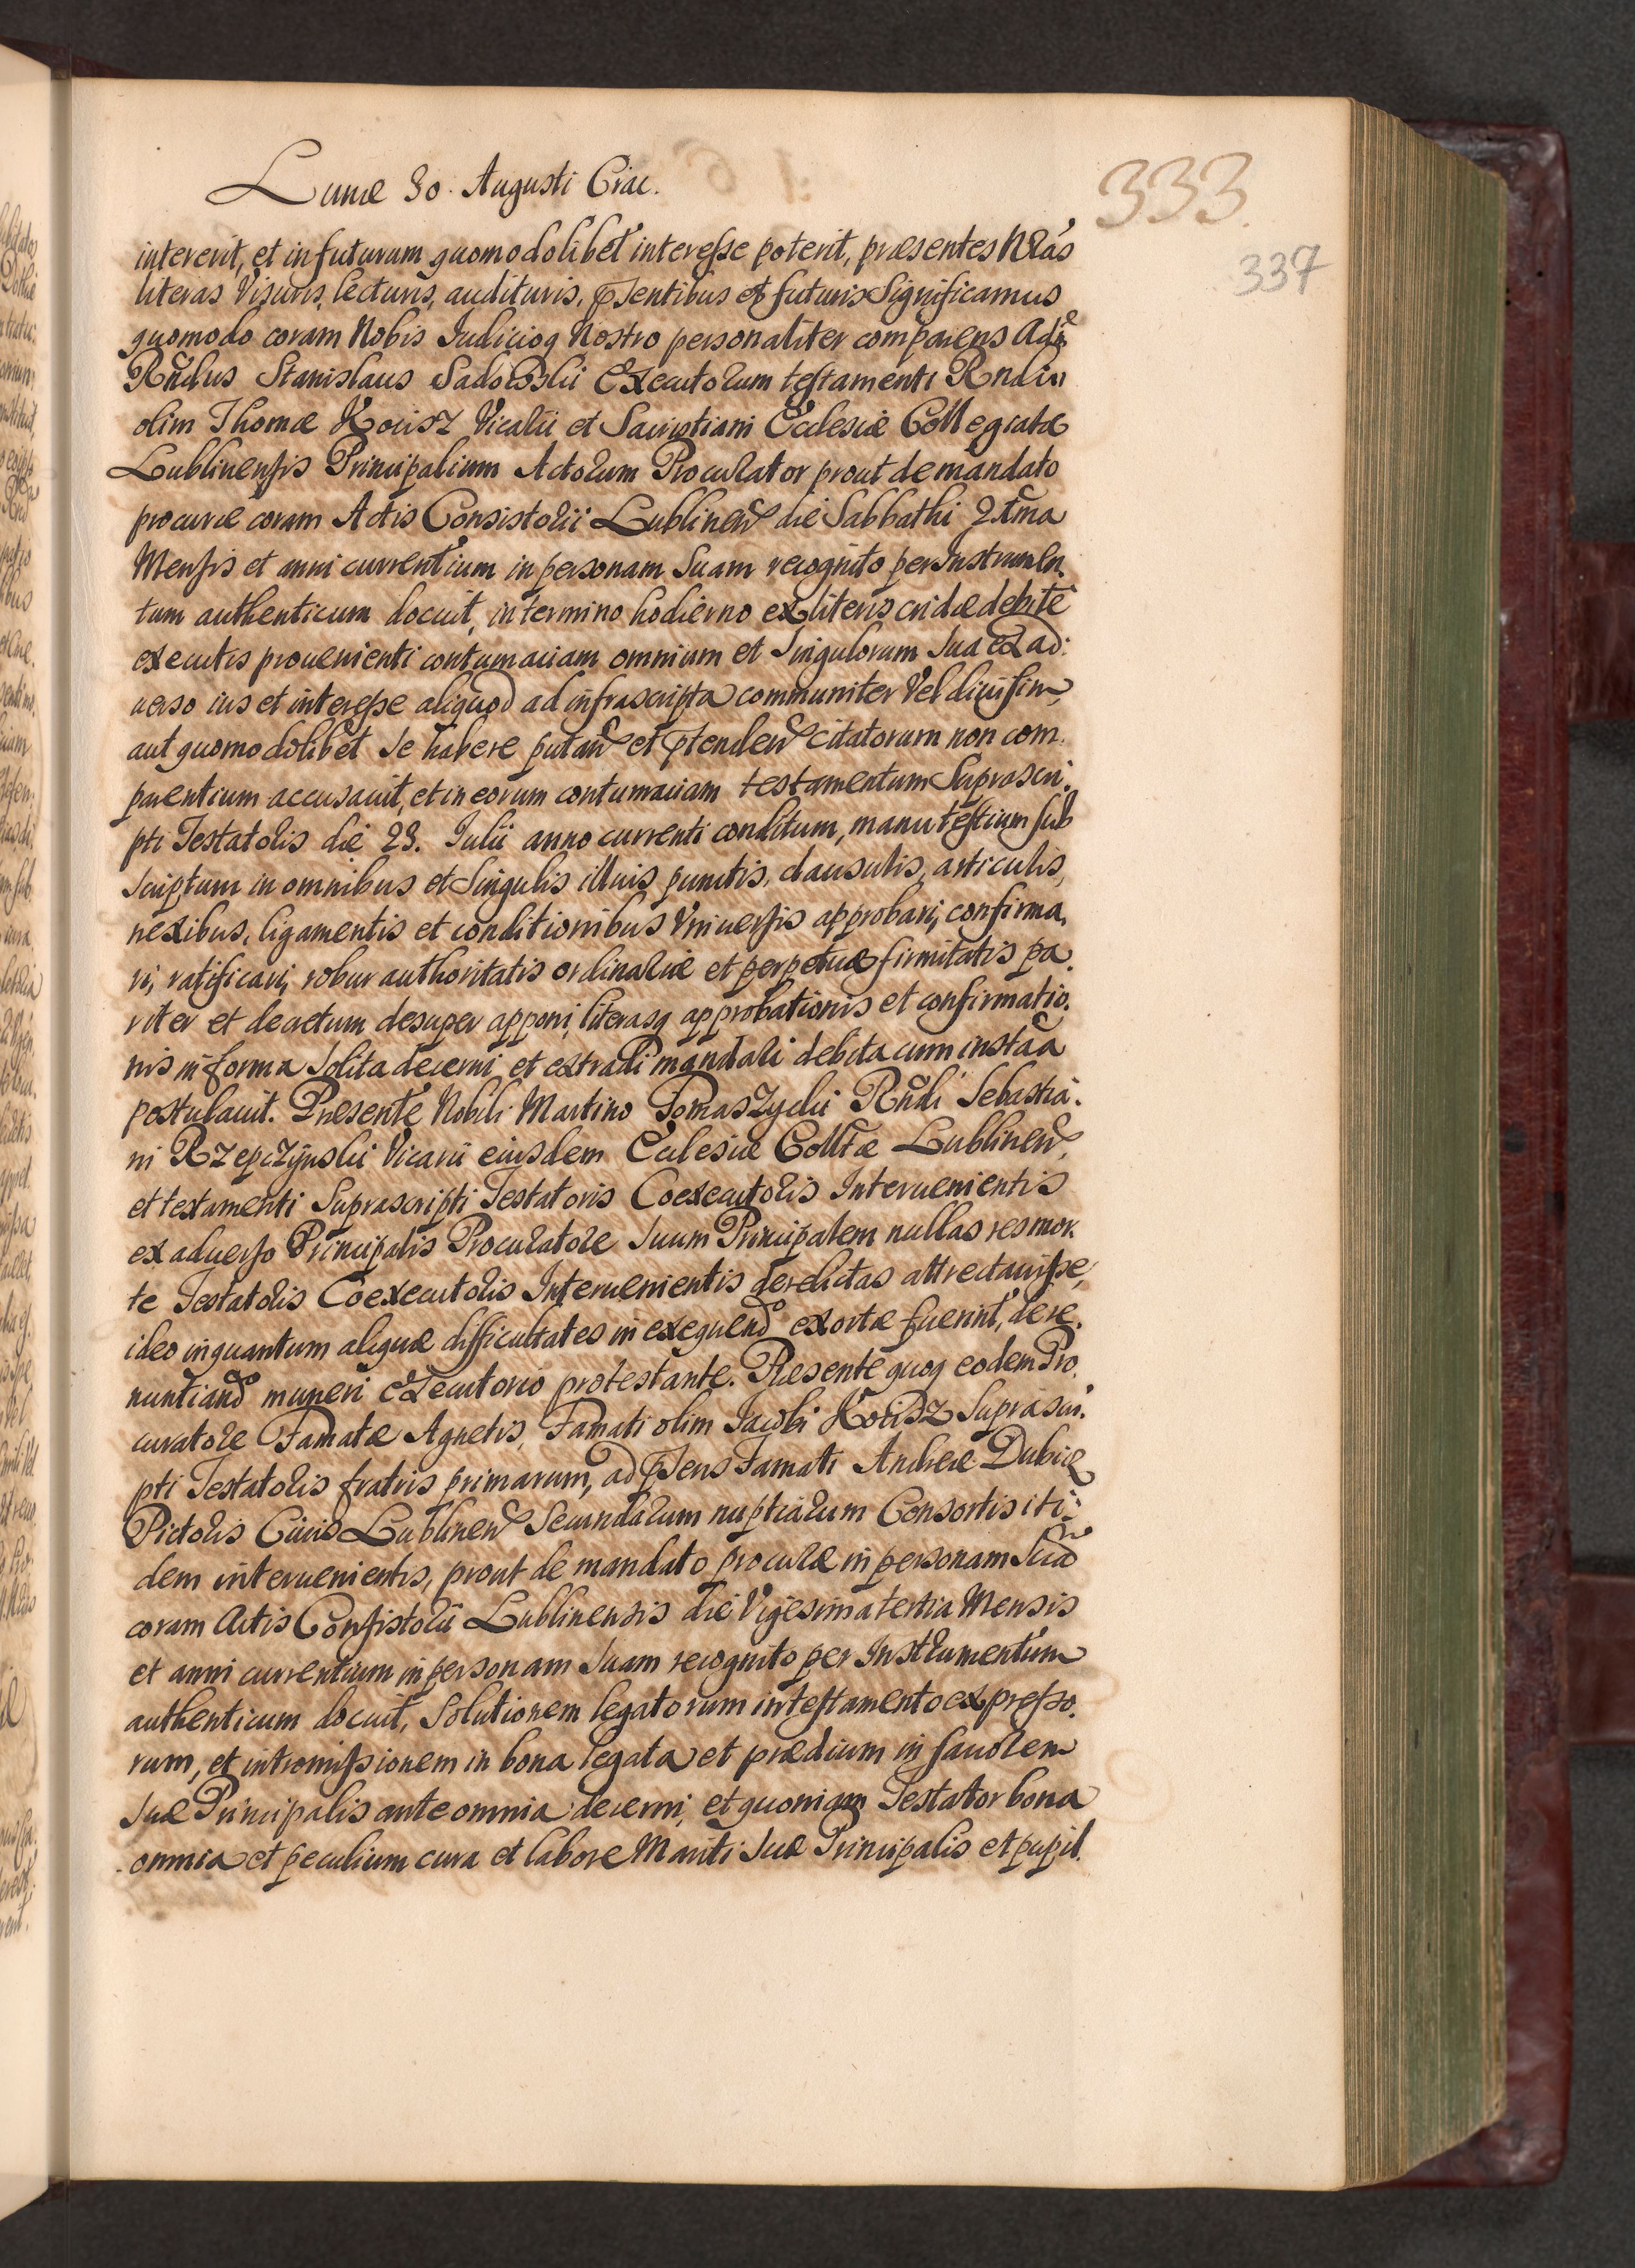 Lunæ 30. Augusti Crac.
333.
337
intererit, et in futurum quomodolibet interesse poterit, præsentes Nras
literas Visuris, lecturis, audituris, pſentibus et futuris Significamus
quomodo coram Nobis Iudicioq Nostro personaliter comparens Adm
Rndus Stanislaus Executorum testamenti Rndi
olim Thomæ Vicarii et Sacristiani Ecclesiæ Collegiatæ
Lublinensis Principalium Actorum Procurator prout de mandato
procuræ coram Actis Consistorii Lublinen die Sabbathi
Mensis et anni currentium in personam Suam recognito per Instrumen
tum authenticum docuit, in termino hodierno ex literis cridæ debite
executis provenienti contumaciam omnium et Singulorum Sua ex ad:
verso ius et interesse aliquod ad infrascripta communiter Vel divisim,
aut quomodolibet Se habere putan et ptenden citatorum non com:
parentium accusavit, et in eorum contumaciam testamentum Suprascri:
pti Testatoris die 23. Iulii anno currenti conditum, manu testium sub
scriptum in omnibus et Singulis illius punctis, clausulis, articulis,
nexibus, ligamentis et conditionibus Universis approbari, confirma,
ri, ratificari, robur authoritatis ordinariæ et perpetuæ firmitatis pa.
riter et decretum desuper apponi, literasq approbationis et confirmatio.
nis in forma Solita decerni et extradi mandari debita cum instãa
postulavit. Præsente Nobili Martino Tomaszycki Rndi Sebastia:
ni Rzepczynski Vicarii eiusdem Ecclesiæ Colltæ Lublinen,
et testamenti Suprascripti Testatoris Coexecutoris Intervenientis
ex adverso Principalis Procuratore Suum Principalem nullas res mor.
te Testatoris Coexecutoris Intervenientis derelictas attrectavisse,
ideo inquantum aliquæ difficultates in exequendo exortæ fuerint, de re.
nuntiando muneri executorio protestante. Præsente quoq eodem Pro.
curatore Famatæ Agnetis, Famati olim Iacobi Suprascri.
pti Testatoris fratris primarum, ad pſens Famati Andreæ Dubiæ
Pictoris Civis Lublinen Secundarum nuptiarum Consortis iti:
dem intervenientis, prout de mandato procuræ in personam Suã
coram Actis Consistorii Lublinensis die Vigesima tertia Mensis
et anni currentium in personam Suam recognito per Instrumentum
authenticum docuit, Solutionem legatorum in testamento expresso.
rum, et intromissionem in bona legata et prædium in favorem
Suæ Principalis ante omnia decerni, et quoniam Testator bona
omnia et peculium cura et labore Mariti Suæ Principalis et pupil.